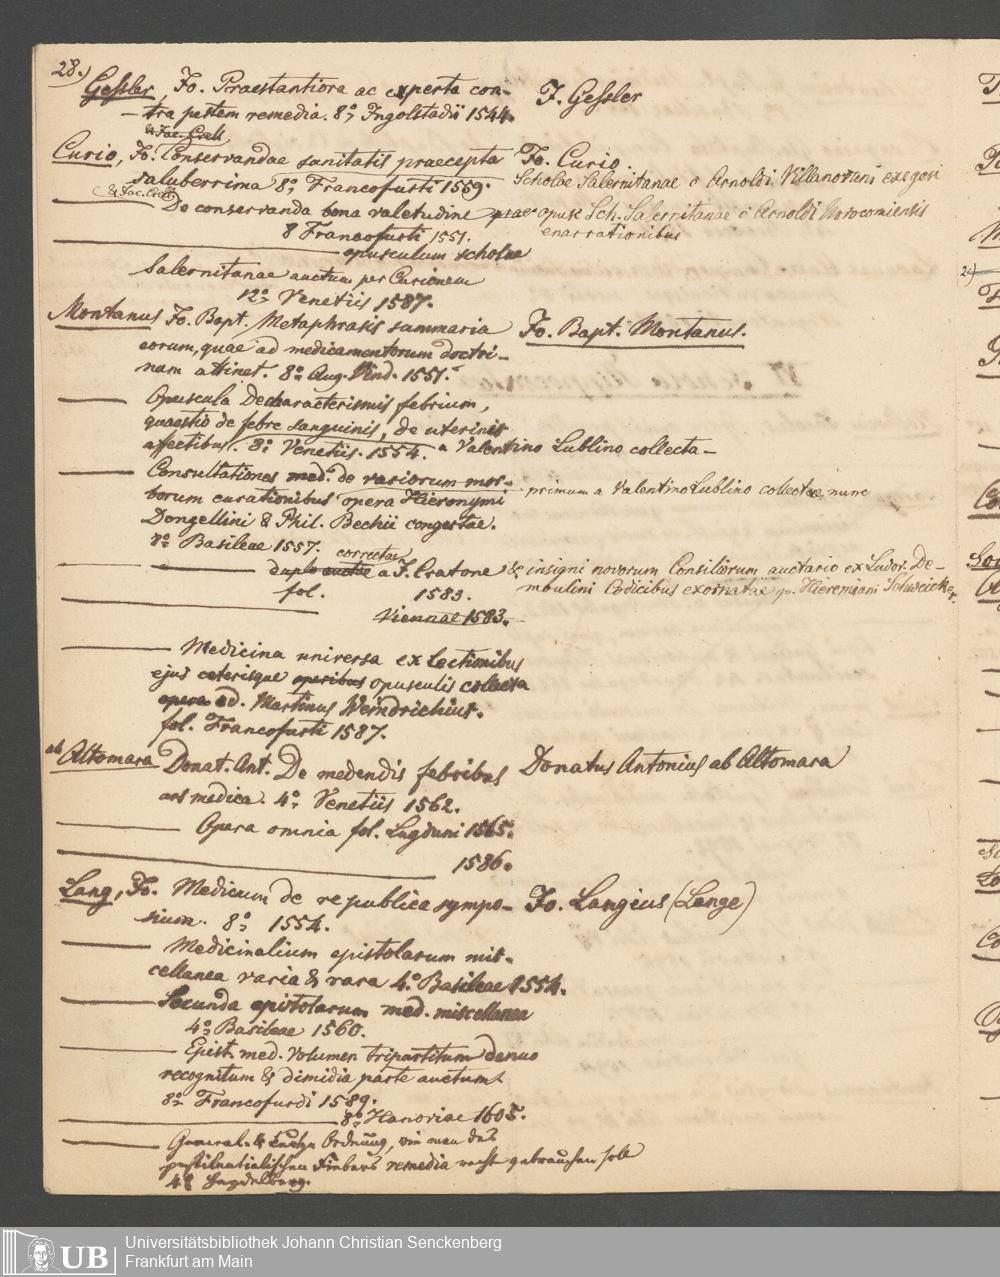 28.)
Gessler, Jo. Praestantiora ac experta con-
tra pestem remedia. 8º, Ingolstadii 1544.
J. Gessler
& Jac. Crell
Curio, Jo. Conservandae sanitatis praecepta
saluberrima 8º, Francofurti 1559.
Jo. Curio.
Scholae Salernitanae c Arnoldi Villanovani exegesi
& Jac. Crell
De conservanda bona valetudine praec opusc Sch. Salernitanae c Arnoldi Novocomiensis
8 Francofurti 1551. enarrationibus
opusculum scholae
Salernitanae auctum per Curionem
12º Venetiis 1587.
Montanus Jo. Bapt. Metaphrasis summaria
eorum, quae ad medicamentorum doctri-
nam attinet. 8º Aug. Vind. 1551.
Jo. Bapt. Montanus.
Opuscula De characterismis febrium,
quaestio de febre sanguinis, de uterinis
affectibus. 8º Venetiis. 1554. a Valentino Lublino collecta
Consultationes med. de variorum mor-
borum curationibus opera Hieronymi
primum a Valentino Lublino collectae, nunc
Dongellini & Phil. Bechii congestae.
8º Basileae 1557.
correctae
duplo auctae a J. Cratone & insigni novorum Consiliorum auctario ex Ludov. De-
moulini Codicibus exornatae Hieremiam
fol. 1583.
Viennae 1583.
Medicina universa ex Lectionibus
ejus caeterisque operibus opusculis collecta
opera ed. Martinus Weindrichius.
fol. Francofurti 1587.
ab Altomara Donat. Ant. De medendis febribus
ars medica. 4º, Venetiis 1562.
Donatus Antonius ab Altomara
Opera omnia fol. Lugduni 1565.
1586.
Lang, Jo. Medicum de republica sympo-
sium. 8º 1554.
Jo. Langius (Lange)
Medicinalium epistolarum mis-
cellanea varia & rara 4º Basileae 1554.
Secunda epistolarum med. miscellanea
4º Basileae 1560.
Epist. med. Volumen tripartitum denuo
recognitum & dimidia parte auctum.
8º Francofurdi 1589.
8º Hanoviae 1605.
General- & Ordnung, wie man das
pestilentialischen Fiebers remedia recht gebrauchen soll
4º
Universitätsbibliothek Johann Christian Senckenberg
Frankfurt am Main
UB